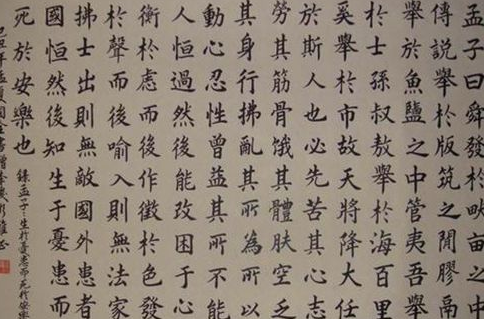 孟子曰舜發於畎亩之中
傳說舉於版築之閒膠鬲
舉於魚鹽之中管夷吾舉
於士孫叔敖舉於海百里
奚舉於市故天將降大任
於斯人也必先苦其心志
勞其筋骨餓其體膚空乏
其身行拂亂其所為所以
動心忍性曾益其所不能
人恒過然後能改困于心
衡於慮而後作徵於色發
於聲而後喻入則無法家
拂士出則無敵國外患者
國恒然後知生于憂患而
死於安樂也
錄孟子生於憂患而死於安樂
己丑年孟夏